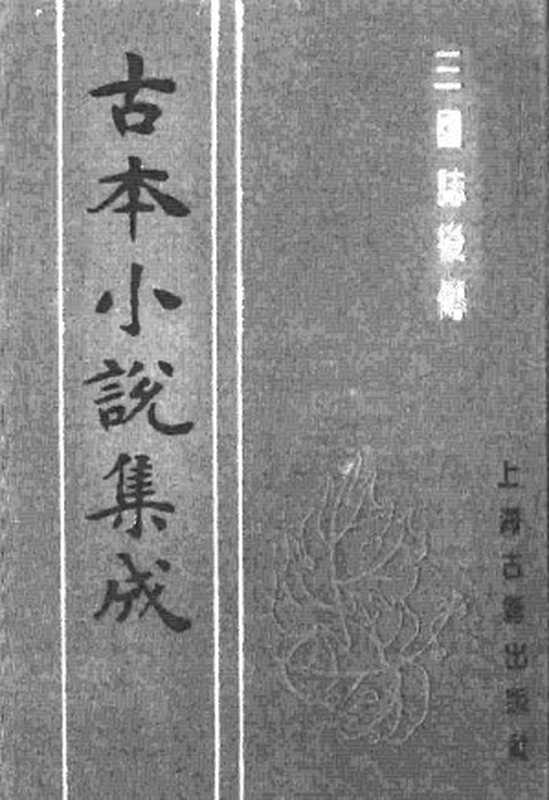 三國誌後傳
古本小說集成
上海古籍出版社